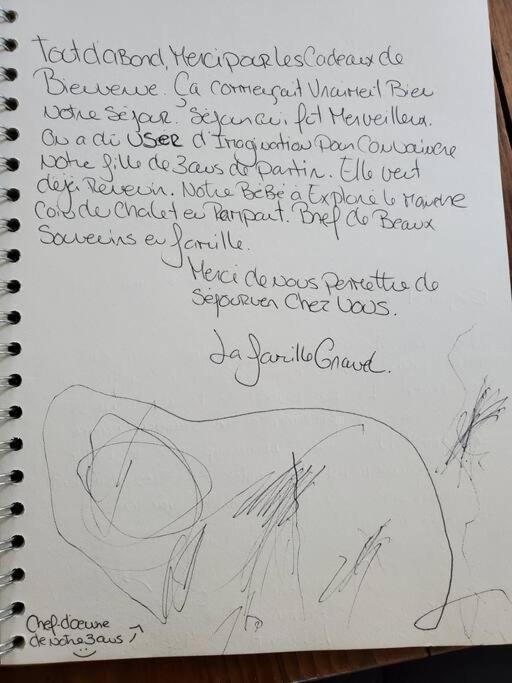 Tout d'abord, Merci pour les Cadeaux de
Bienvenue. Ça commençait Vraimeil Bien
Notre Séjour. Séjour qui fut Merveilleux.
On a dû USER d'Imagination Pour Convaincre
Notre fille de 3 ans de partir. Elle veut
déjà Revenir. Notre BéBé à Exploré le Moindre
Coin du Chalet en Rampant. Bref de Beaux
Souvenirs en famille.
Merci de nous Permettre de
Séjourner Chez Vous.
La famille Gravel.
Chef-d'œuvre
de Notre 3 ans